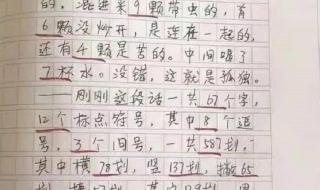 的。混进来9颗带虫的，有
6颗没炒开，是连在一起的，
还有4颗是苦的。中间喝了
7杯水。没错，这就是孤独。
——刚刚这段话一共67个字，
12个标点符号，其中8个逗
号，3个旧号，一共587划，
其中横78划，竖137划，撇65